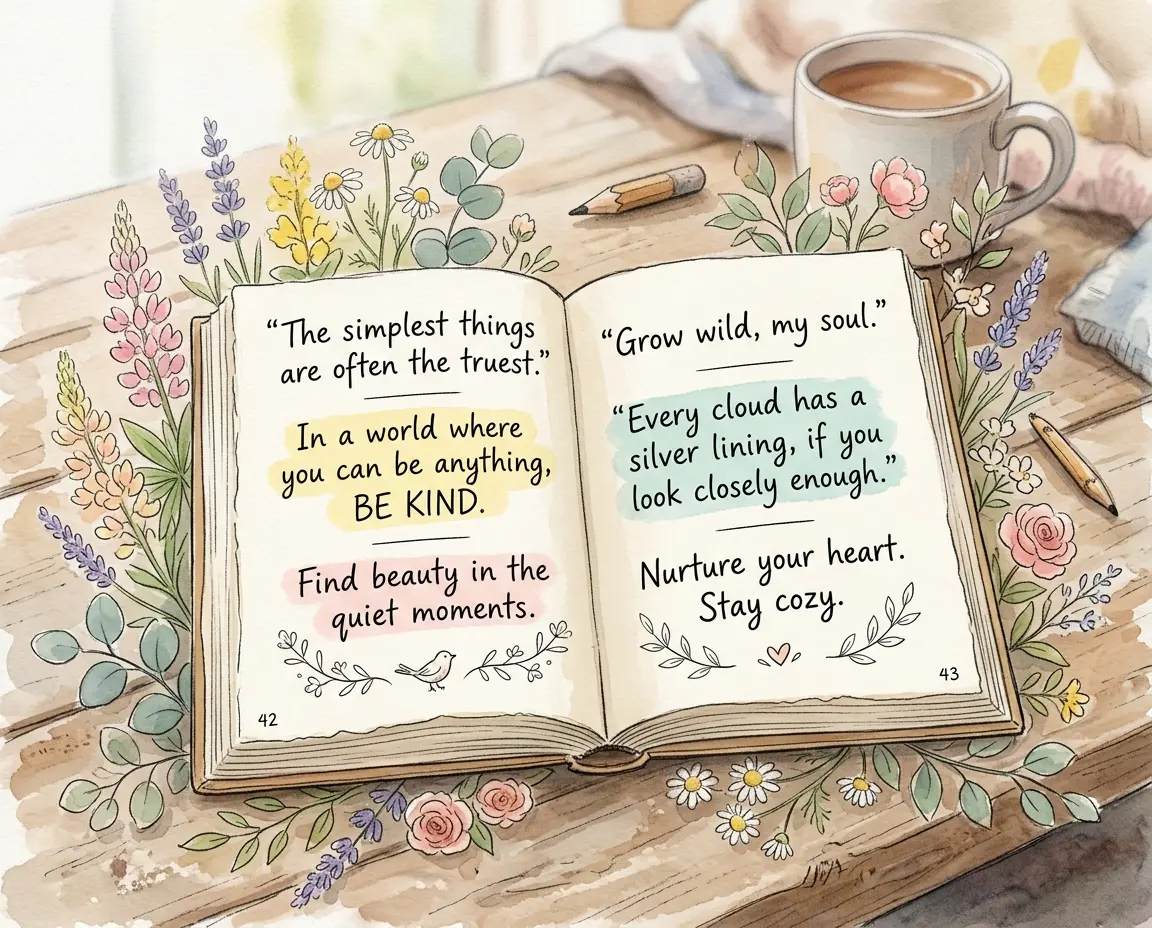 “The simplest things
are often the truest.”
In a world where
you can be anything,
BE KIND.
Find beauty in the
quiet moments.
42
“Grow wild, my soul.”
“Every cloud has a
silver lining, if you
look closely enough.”
Nurture your heart.
Stay cozy.
43